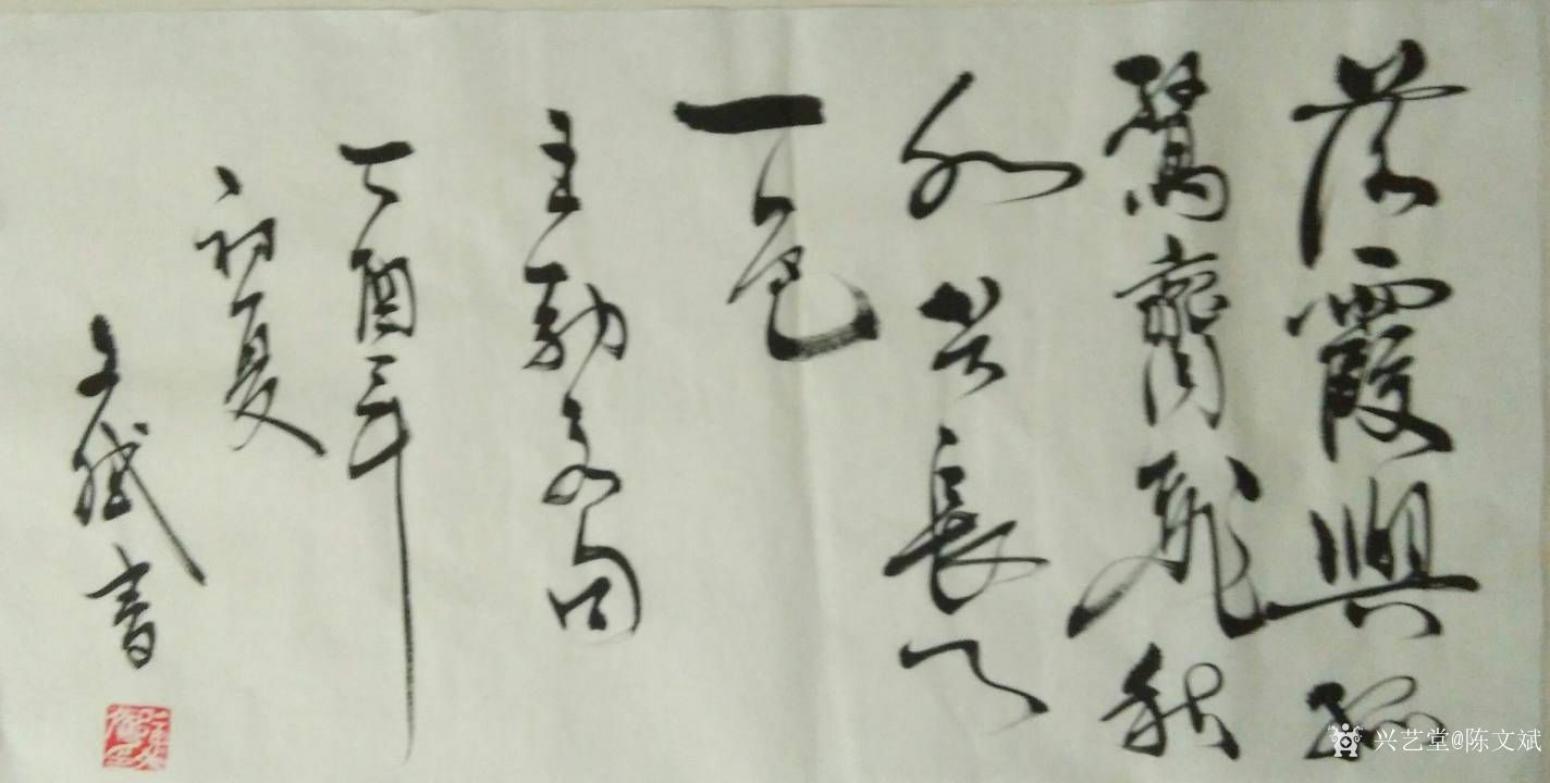 落霞與孤
鶩齊飛秋
水共長天
一色
王勃文句
丁酉年
初夏
文斌書
兴艺堂@陈文斌